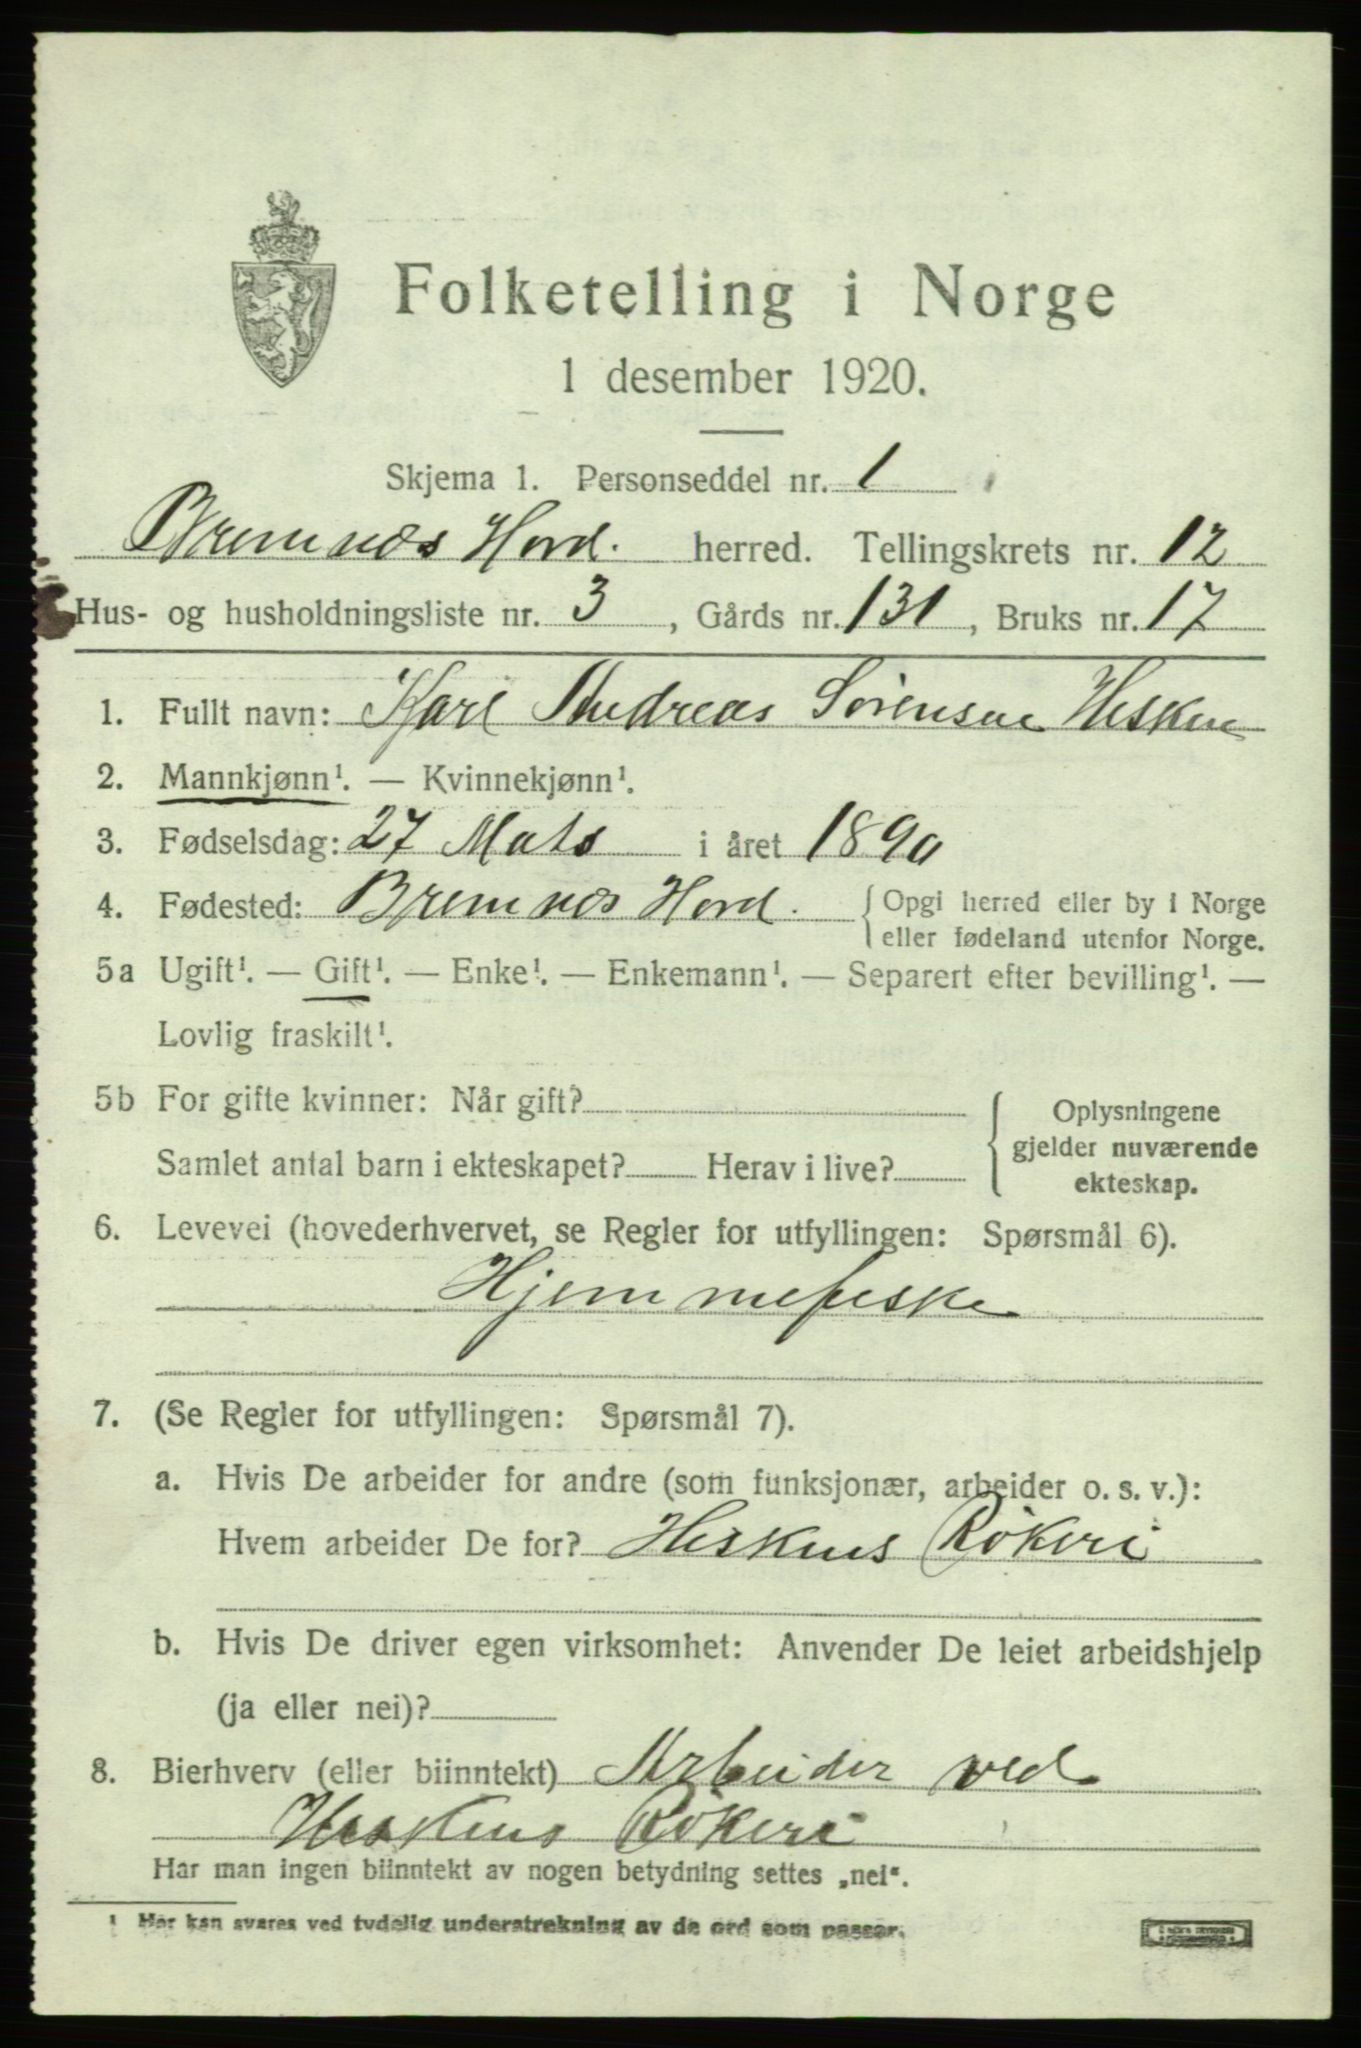 Folketelling i Norge
1 desember 1920.
Skjema 1. Personseddel nr. 1
Bremnæs Hord. herred. Tellingskrets nr. 12
Hus- og husholdningsliste nr. 3, Gårds nr. 131, Bruks nr. 17
1. Fullt navn: Karl Andreas Sørensen Hesken
2. Mannkjønn¹. — Kvinnekjønn¹.
3. Fødselsdag: 27 Mats i året 1890
4. Fødested: Bremnæs Hord. { Opgi herred eller by i Norge
eller fødeland utenfor Norge.
5a Ugift¹. — Gift¹. — Enke¹. — Enkemann¹. — Separert efter bevilling¹. —
Lovlig fraskilt¹.
5b For gifte kvinner: Når gift?
Samlet antal barn i ekteskapet? Herav i live?
{ Oplysningene
gjelder nuværende
ekteskap.
6. Levevei (hovederhvervet, se Regler for utfyllingen: Spørsmål 6).
Hjemmefiske
7. (Se Regler for utfyllingen: Spørsmål 7).
a. Hvis De arbeider for andre (som funksjonær, arbeider o. s. v.):
Hvem arbeider De for? Heskens Røkeri
b. Hvis De driver egen virksomhet: Anvender De leiet arbeidshjelp
(ja eller nei)?
8. Bierhverv (eller biinntekt) Arbeider ved
Heskens Røkeri
Har man ingen biinntekt av nogen betydning settes „nei“.
¹ Her kan svares ved tydelig understrekning av de ord som passer.